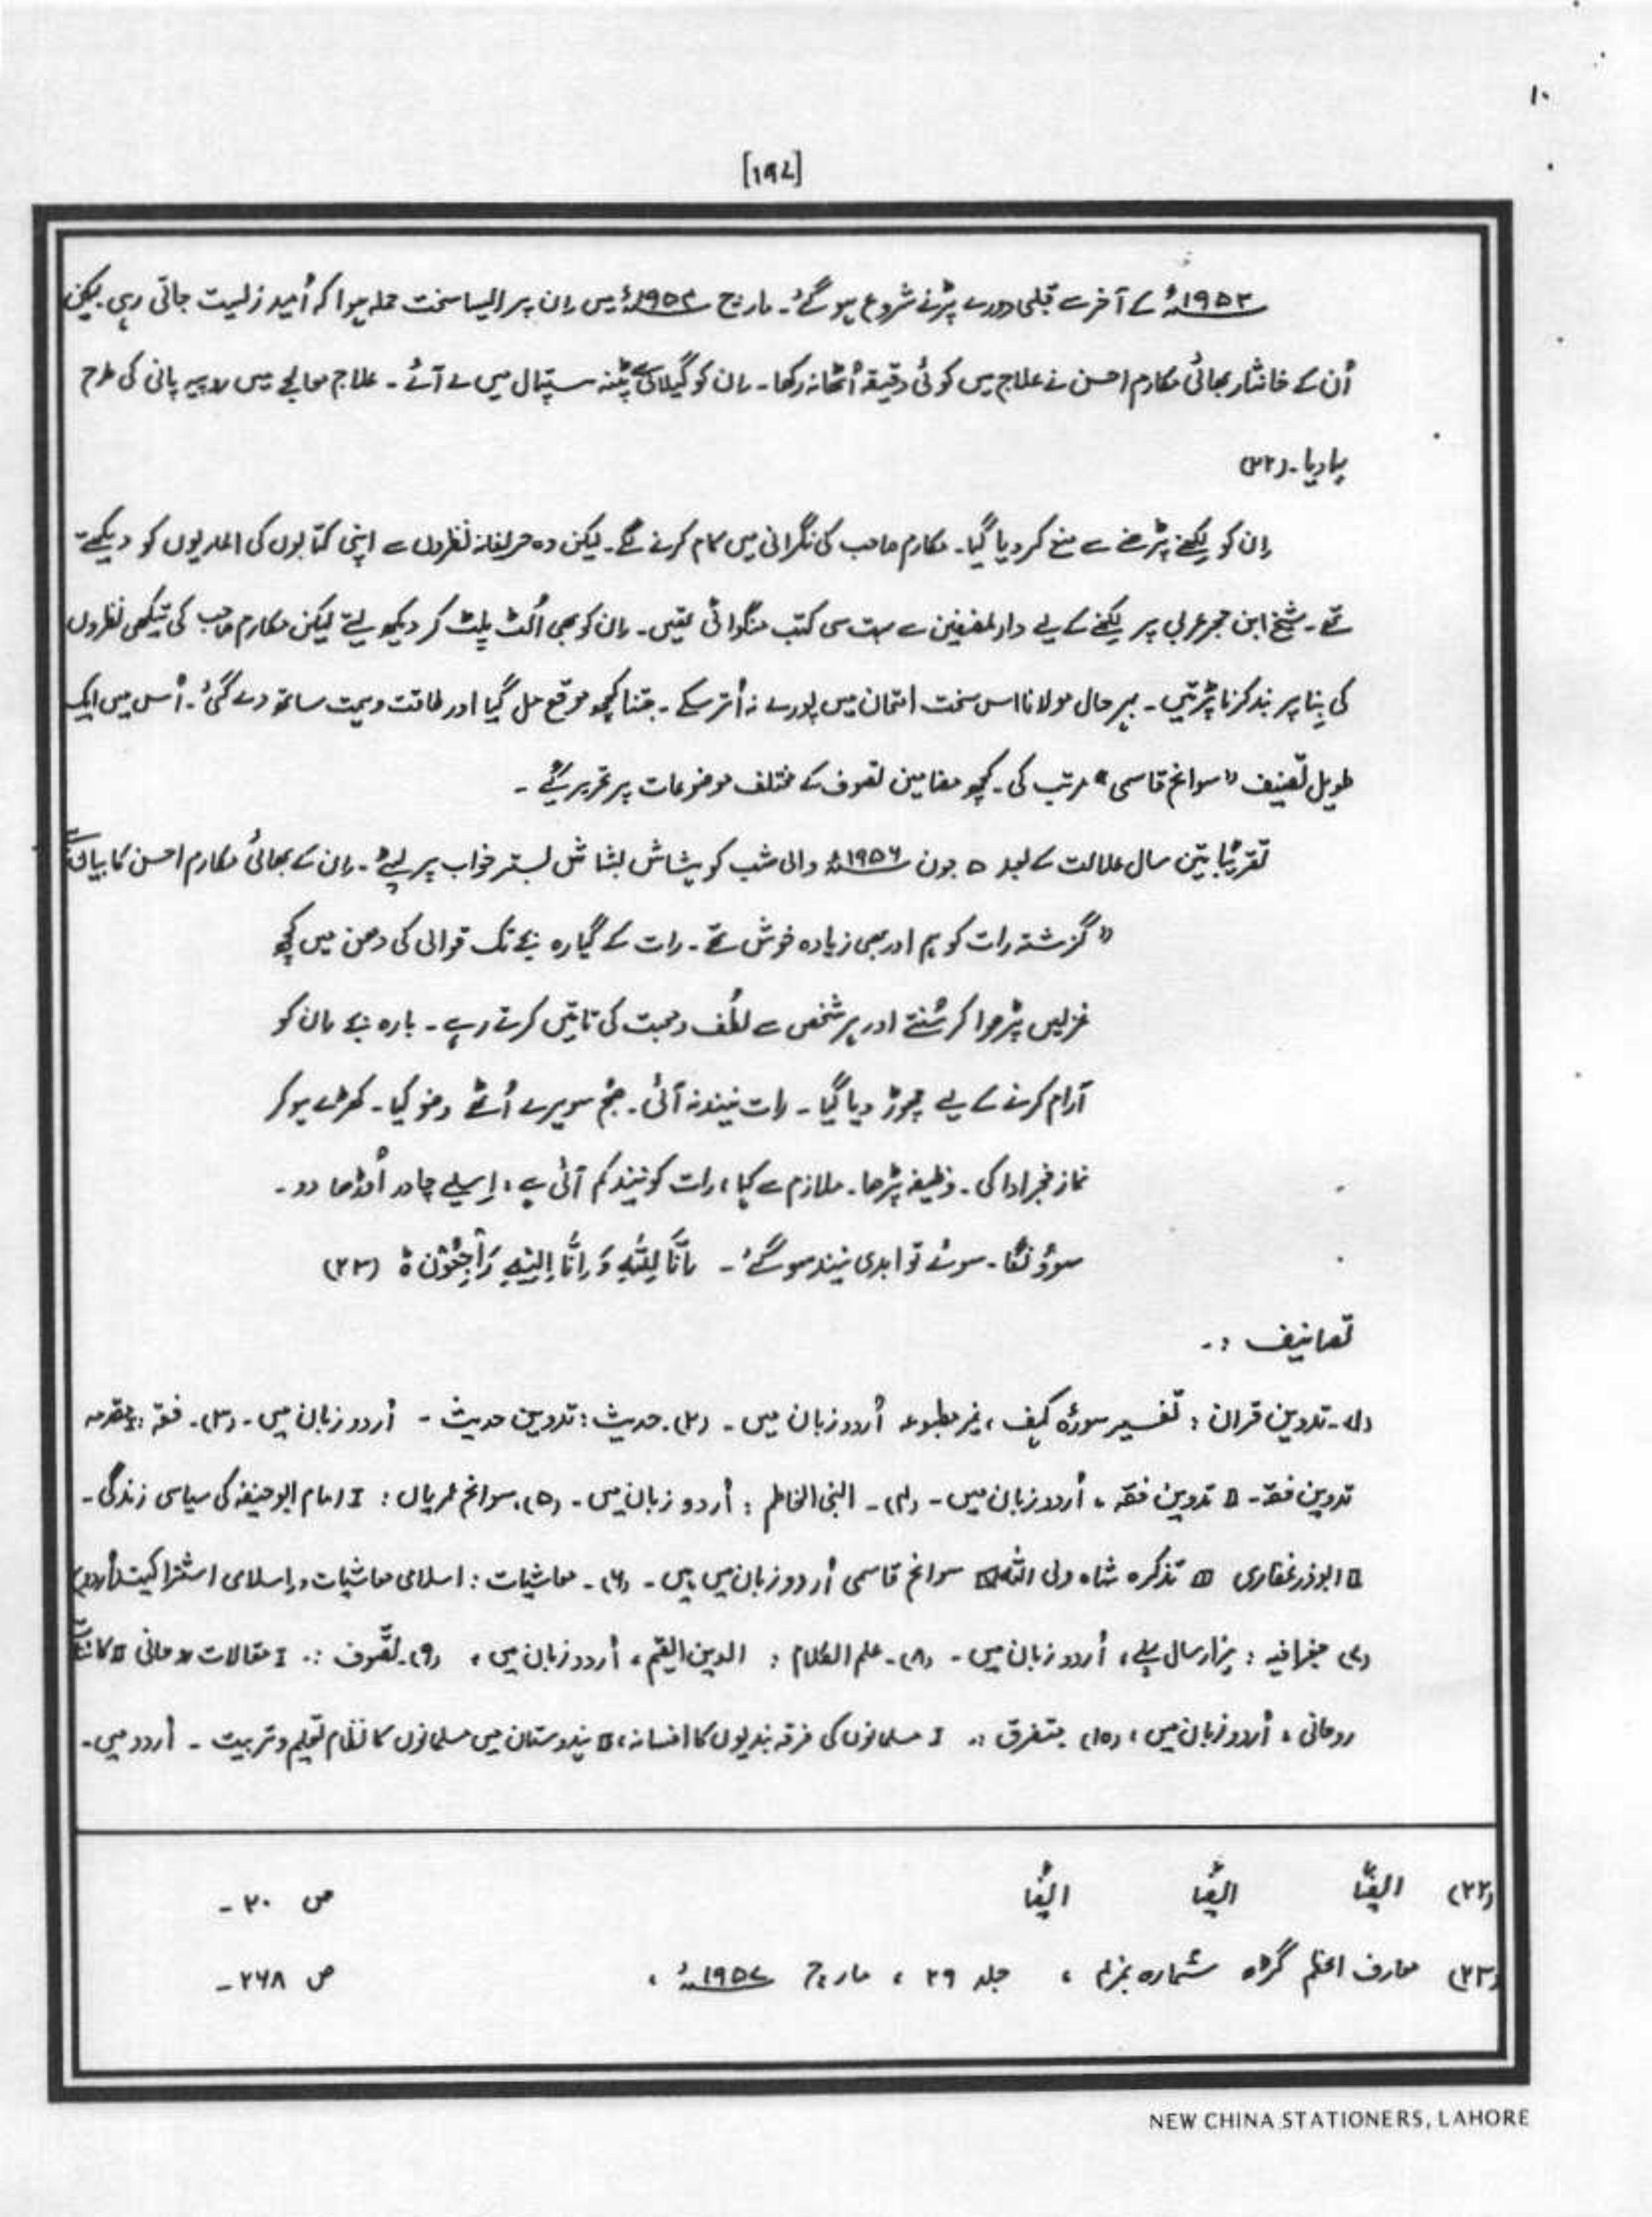 ۱۰
[۱۹۷]
۱۹۵۳ء کے آخر سے قلبی دورے پڑنے شروع ہو گئے۔ مارچ ۱۹۵۴ء میں اِن پر ایسا سخت حملہ ہوا کہ اُمید زلیست جاتی رہی۔ لیکن
اُن کے جانثار بھائی مکارم احسن نے علاج میں کوئی دقیقہ اُٹھا نہ رکھا۔ اِن کو گیلانی سے پٹنہ ہسپتال میں لے آئے۔ علاج معالجے میں روپیہ پانی کی طرح
بہا دیا۔ (۲۲)
اِن کو لکھنے پڑھنے سے منع کر دیا گیا۔ مکارم صاحب کی نگرانی میں کام کرنے لگے۔ لیکن وہ حریفانہ نظروں سے اپنی کتابوں کی الماریوں کو دیکھتے
تھے۔ شیخ ابن حجر عربی پر لکھنے کے لیے دارلمصنفین سے بہت سی کتب منگوائی تھیں۔ اِن کو بھی اُلٹ پلٹ کر دیکھ لیتے لیکن مکارم صاحب کی تیکھی نظروں
کی بِنا پر بند کرنا پڑتیں۔ بہر حال مولانا اس سخت امتحان میں پورے نہ اُتر سکے۔ جتنا کچھ موقع مل گیا اور طاقت و ہمت ساتھ دے گئی۔ اُس میں ایک
طویل تصنیف "سوانح قاسمی" مرتب کی۔ کچھ مضامین تصوف کے مختلف موضوعات پر تحریر کیے۔
تقریباً تین سال علالت کے بعد ۵ جون ۱۹۵۶ء والی شب کو ہشاش بشاش بستر خواب پر لیٹے۔ اِن کے بھائی مکارم احسن کا بیان ہے
"گزشتہ رات کو ہم اور بھی زیادہ خوش تھے۔ رات کے گیارہ بجے تک قوالی کی دھن میں کچھ
غزلیں پڑھوا کر سُنتے اور ہر شخص سے لُطف و محبت کی باتیں کرتے رہے۔ بارہ بجے اِن کو
آرام کرنے کے لیے چھوڑ دیا گیا۔ رات نیند نہ آئی۔ صبح سویرے اُٹھے وضو کیا۔ کھڑے ہو کر
نماز فجر ادا کی۔ وظیفہ پڑھا۔ ملازم سے کہا، رات کو نیند کم آئی ہے، اِسلیے چادر اُوڑھا دو۔
سوؤنگا۔ سوئے تو ابدی نیند سو گئے۔ اِنَّا لِلّٰہِ وَ اِنَّا اِلَیْہِ رَاجِعُوْنَ ہ (۲۳)
تصانیف :۔
(۱)۔ تدوین قران : تفسیر سورۂ کہف، غیر مطبوعہ اُردو زبان میں۔ (۲)۔ حدیث : تدوین حدیث ۔ اُردو زبان میں۔ (۳)۔ فقہ : I مقدمہ
تدوین فقہ۔ II تدوین فقہ، اُردو زبان میں۔ (۴)۔ النبی الخاطم : اُردو زبان میں۔ (۵)۔ سوانح عمریاں : I امام ابو حنیفہ کی سیاسی زندگی۔
II ابوذر غفاری III تذکرہ شاہ ولی اللہ IV سوانح قاسمی اُردو زبان میں ہیں۔ (۶)۔ معاشیات : اسلامی معاشیات و اِسلامی اشتراکیت (اُردو)
(۷) جغرافیہ : ہزار سال پہلے، اُردو زبان میں۔ (۸)۔ علم الکلام : الدین القیم، اُردو زبان میں، (۹)۔ تصّوف :۔ I مقالات روحانی II کائنات
روحانی، اُردو زبان میں، (۱۰) متفرق :۔ I مسلمانوں کی فرقہ بندیوں کا افسانہ، II ہندوستان میں مسلمانوں کا نظام تعلیم و تربیت ۔ اُردو میں۔
(۲۲) ایضًا ایضًا ایضًا ص ۲۰۔
(۲۳) معارف اعظم گڑھ شمارہ نمبر۳ ، جلد ۲۹ ، مارچ ۱۹۵۷ء ، ص ۲۶۸۔
NEW CHINA STATIONERS, LAHORE